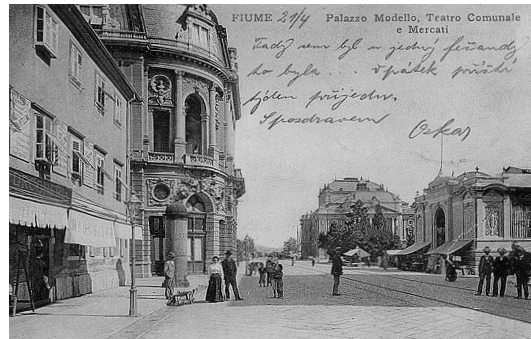 FIUME 21/4 Palazzo Modello, Teatro Comunale
e Mercati
Tady sem byl u jednej fešandy
to byla ... v pátek příští
týden přijedu.
S pozdravem Oskar